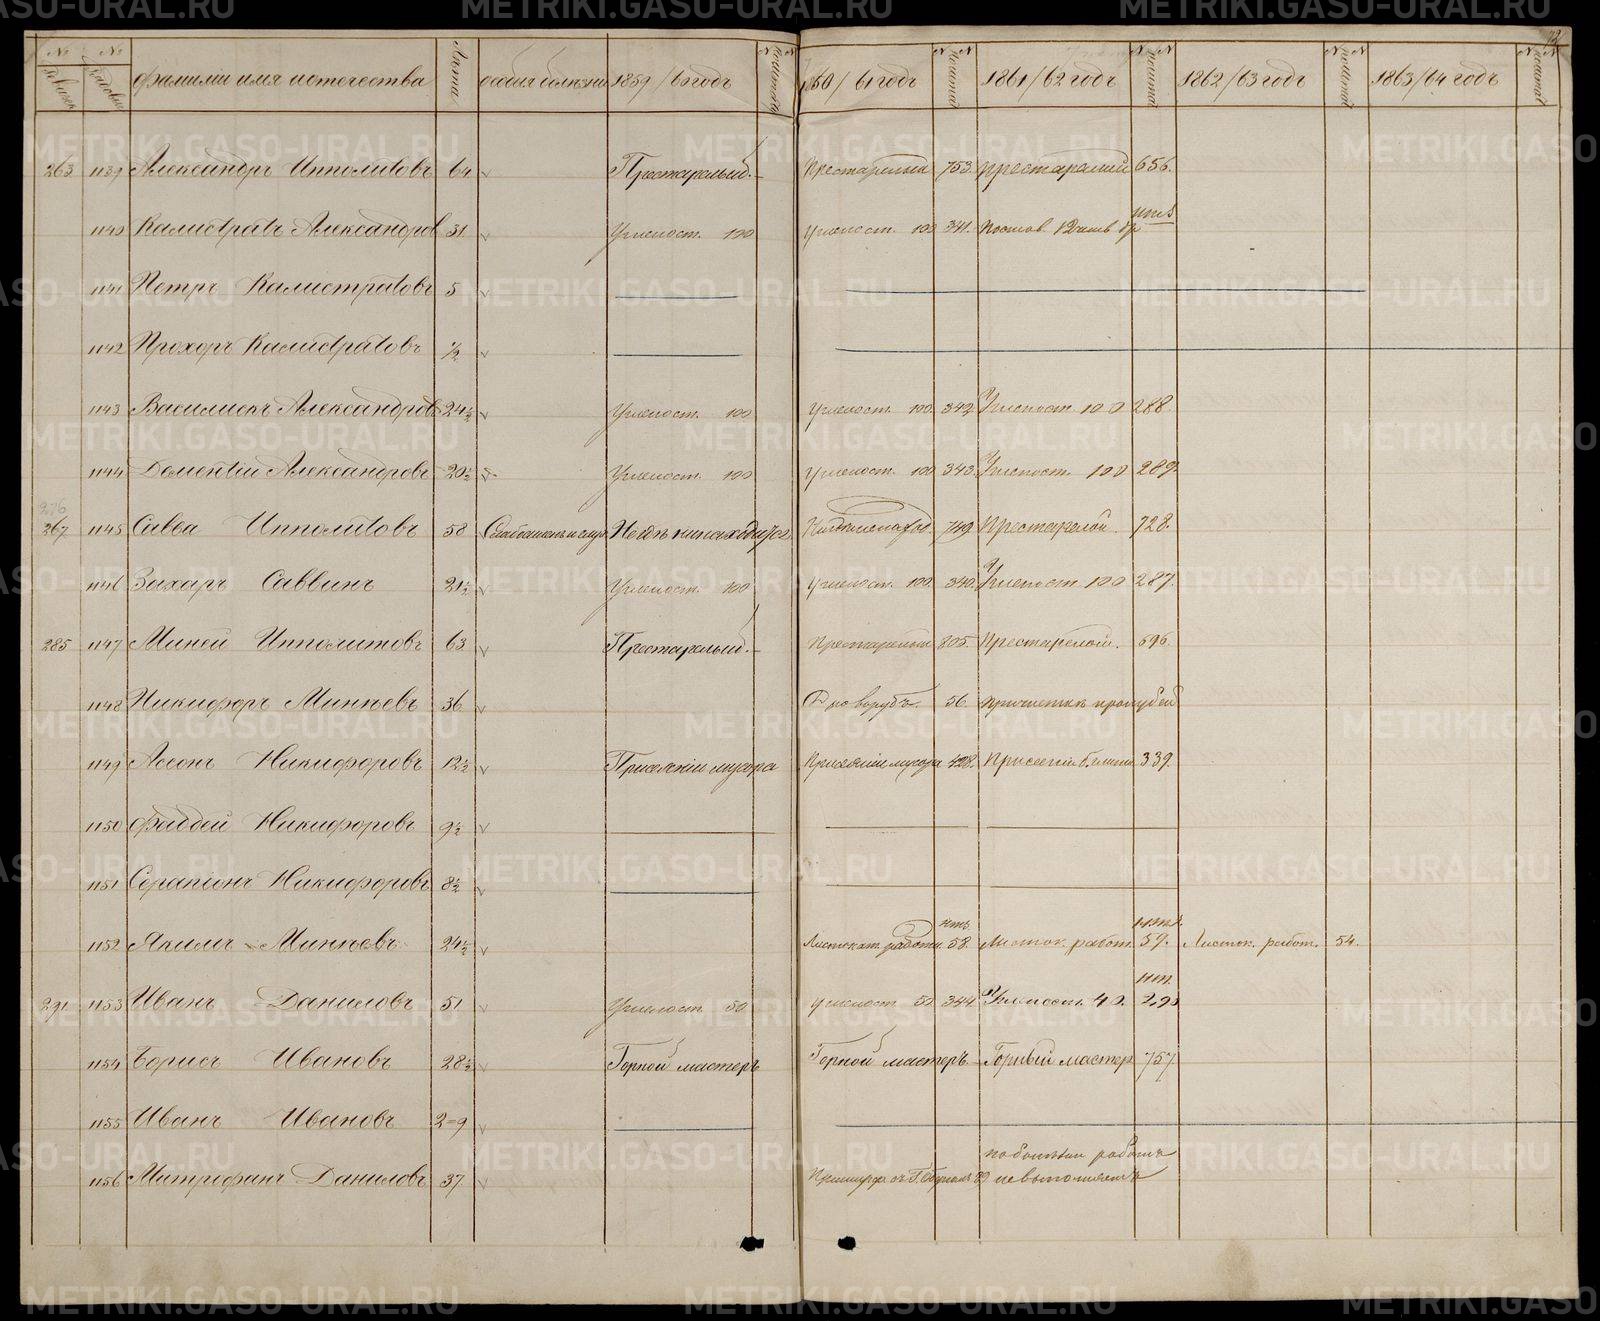 METRIKI.GASO-URAL.RU
№ № фамилiи имя и отечества Лѣта особыя болѣзни 1859/60 годъ 1860/61 годъ 1861/62 годъ 1862/63 годъ 1863/64 годъ
263 1139 Александръ Ипполитовъ 64 Престарелый. Престарелый 753. престарелый 656.
1140 Калистратъ Александров 31. Углепост. 100 углепост. 100 341.
1141 Петръ Калистратовъ 5
1142 Прохоръ Калистратовъ ½
1143 Василискъ Александровъ 24½ Углепост. 100 углепост. 100. 342 Углепост. 100 288.
1144 Дометiй Александровъ 20½ Углепост. 100 углепост. 100 343. Углепост. 100 289.
276
267 1145 Савва Ипполитовъ 58 749. Престарелой. 728.
1146 Захаръ Саввинъ 21½ Углепост. 100 углепост. 100. 340. Углепост. 100 287.
285 1147 Миней Ипполитовъ 63 Престарелый. Престарелый 805. Престарелой. 696.
1148 Никифоръ Минѣевъ 36 Дроворубъ. 56.
1149 Никифоровъ 12½ мусора мусора 428. 339.
1150 Фаддей Никифоровъ 9½
1151 Серапiонъ Никифоровъ 8½
1152 Якимъ Минѣевъ 24½ работн. 58. Листок. работ. 59. Листок. работ. 54.
291 1153 Иванъ Даниловъ 51 Углепост. 50 углепост 50. 344. Углепост. 40.
1154 Борисъ Ивановъ 28½ Горной мастеръ Горной мастеръ Горный мастер 757.
1155 Иванъ Ивановъ 2=9
по болѣзни работъ
1156 Митрофанъ Даниловъ 37 невыполняетъ